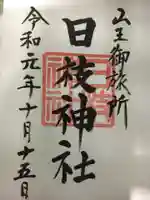 山王御旅所
日枝神社
令和元年十月十五日